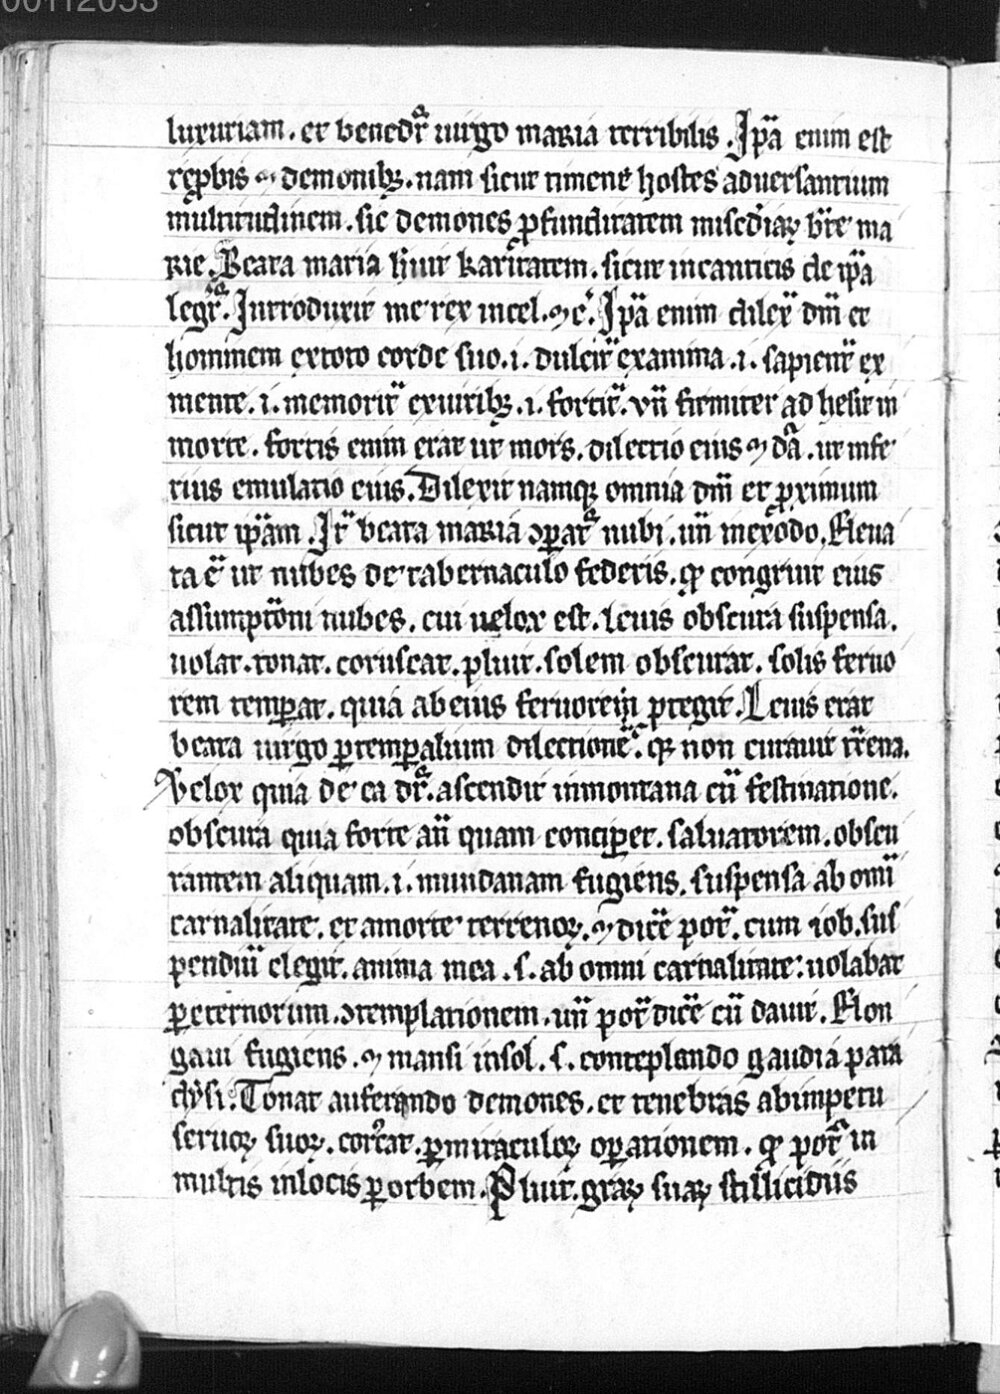 00112053
luxuriam . et benedr̃ uirgo maria terribilis . Ip̃a enim est
rep̱bis ⁊ demonibꝫ . nam sicut timent hostes aduersantium
multitudinem . sic demones ꝓfunditatem misc̃diaꝝ bt̃e ma
rie . Beata maria huit karitatem . sicut in canticis de ip̃a
legit̃ . Introduxit me rex in cel . ⁊ c̃ . Ip̃a enim dilex̃ dm̃ et
hominem ex toto corde suo . i . dulcit̃ ex anima . i . sapient̃ ex
mente . i . memorit̃ ex uiribꝫ . i . fortit̃ . un̄ firmiter ad hesit in
morte . fortis enim erat ut mors . dilectio eius ⁊ dã . ut infe
rius emulatio eius . Dilexit namqꝫ omnia dm̃ et ꝓximum
sicut ip̃am . It̃ beata maria ꝯparat̃ nubi . un̄ in exodo . Eleua
ta ẽ ut nubes de tabernaculo federis . qꝫ congruit eius
assumptõni nubes . cui uelox est . leuis obscura suspensa .
uolat . tonat . coruscat . pluit . solem obscurat . solis feruo
rem temꝑat . quia ab eius feruorem ꝓtegit . Leuis erat
beata uirgo ꝑ temꝑalium dilectionẽ . qꝫ non curauit tr̃ena .
Velox quia de ea dr̃ . ascendit in montana cũ festinatione .
obscura quia forte añ quam conciꝑet . saluatorem . obscu
rantem aliquam . i . mundanam fugiens . suspensa ab omĩ
carnalitate . et amorte terrenoꝝ . ⁊ dicẽ pot̃ . cum iob . sus
pendiũ elegit . anima mea . s . ab omni carnalitate : uolabat
ꝑ eternorum . ꝯtemplationem . un̄ pot̃ dicẽ cũ dauit . Elon
gaui fugiens . ⁊ mansi in sol . s . conteplando gaudia para
dysi . Tonat auferendo demones . et tenebras ab impetu
seruoꝝ suoꝝ . ꝑ miraculoꝝ oꝑationem . qꝫ pot̃ in
multis in locis ꝑ orbem . Pluit . graꝝ suaꝝ stillicidiis